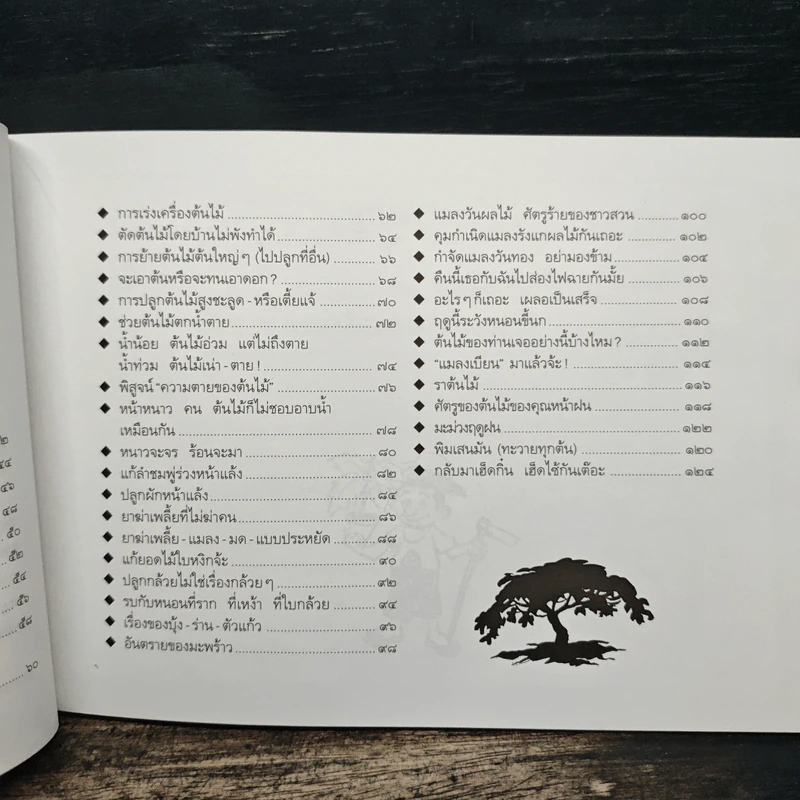 ๒
๔๔
๔๖
๔๘
๕๐
๕๒
๕๔
๕๖
๕๘
๖๐
◆ การเร่งเครื่องต้นไม้ ๖๒
◆ ตัดต้นไม้โดยบ้านไม่พังทำได้ ๖๔
◆ การย้ายต้นไม้ต้นใหญ่ๆ (ไปปลูกที่อื่น) ๖๖
◆ จะเอาต้นหรือจะทนเอาดอก ? ๖๘
◆ การปลูกต้นไม้สูงชะลูด - หรือเตี้ยแจ้ ๗๐
◆ ช่วยต้นไม้ตกน้ำตาย ๗๒
◆ น้ำน้อย ต้นไม้อ่วม แต่ไม่ถึงตาย
น้ำท่วม ต้นไม้เน่า - ตาย ! ๗๔
◆ พิสูจน์ “ความตายของต้นไม้” ๗๖
◆ หน้าหนาว คน ต้นไม้ก็ไม่ชอบอาบน้ำ
เหมือนกัน ๗๘
◆ หนาวจะจร ร้อนจะมา ๘๐
◆ แก้ลำชมพู่ร่วงหน้าแล้ง ๘๒
◆ ปลูกผักหน้าแล้ง ๘๔
◆ ยาฆ่าเพลี้ยที่ไม่ฆ่าคน ๘๖
◆ ยาฆ่าเพลี้ย - แมลง - มด - แบบประหยัด ๘๘
◆ แก้ยอดไม้ใบหงิกจ้ะ ๙๐
◆ ปลูกกล้วยไม่ใช่เรื่องกล้วยๆ ๙๒
◆ รบกับหนอนที่ราก ที่เหง้า ที่ใบกล้วย ๙๔
◆ เรื่องของบุ้ง - ร่าน - ตัวแก้ว ๙๖
◆ อันตรายของมะพร้าว ๙๘
◆ แมลงวันผลไม้ ศัตรูร้ายของชาวสวน ๑๐๐
◆ คุมกำเนิดแมลงรังแกผลไม้กันเถอะ ๑๐๒
◆ กำจัดแมลงวันทอง อย่ามองข้าม ๑๐๔
◆ คืนนี้เธอกับฉันไปส่องไฟฉายกันมั้ย ๑๐๖
◆ อะไรๆ ก็เถอะ เผลอเป็นเสร็จ ๑๐๘
◆ ฤดูนี้ระวังหนอนขี้นก ๑๑๐
◆ ต้นไม้ของท่านเจออย่างนี้บ้างไหม ? ๑๑๒
◆ “แมลงเบียน” มาแล้วจ้ะ ! ๑๑๔
◆ ราต้นไม้ ๑๑๖
◆ ศัตรูของต้นไม้ของคุณหน้าฝน ๑๑๘
◆ มะม่วงฤดูฝน ๑๒๒
◆ พิมเสนมัน (ทะวายทุกต้น) ๑๒๐
◆ กลับมาเฮ็ดกิ๋น เฮ็ดไซ้กันเต๊อะ ๑๒๔